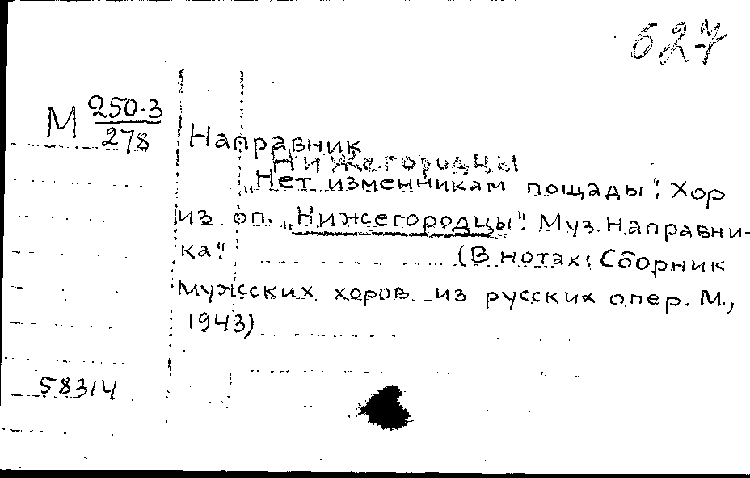 627
М 250-3
278
Направник
Нижегородцы
„Нет изменникам пощады": Хор
из оп. „Нижегородцы". Муз. Направни-
ка."
(В нотах: Сборник
мужских хоров из русских опер. М.,
1943)
58314